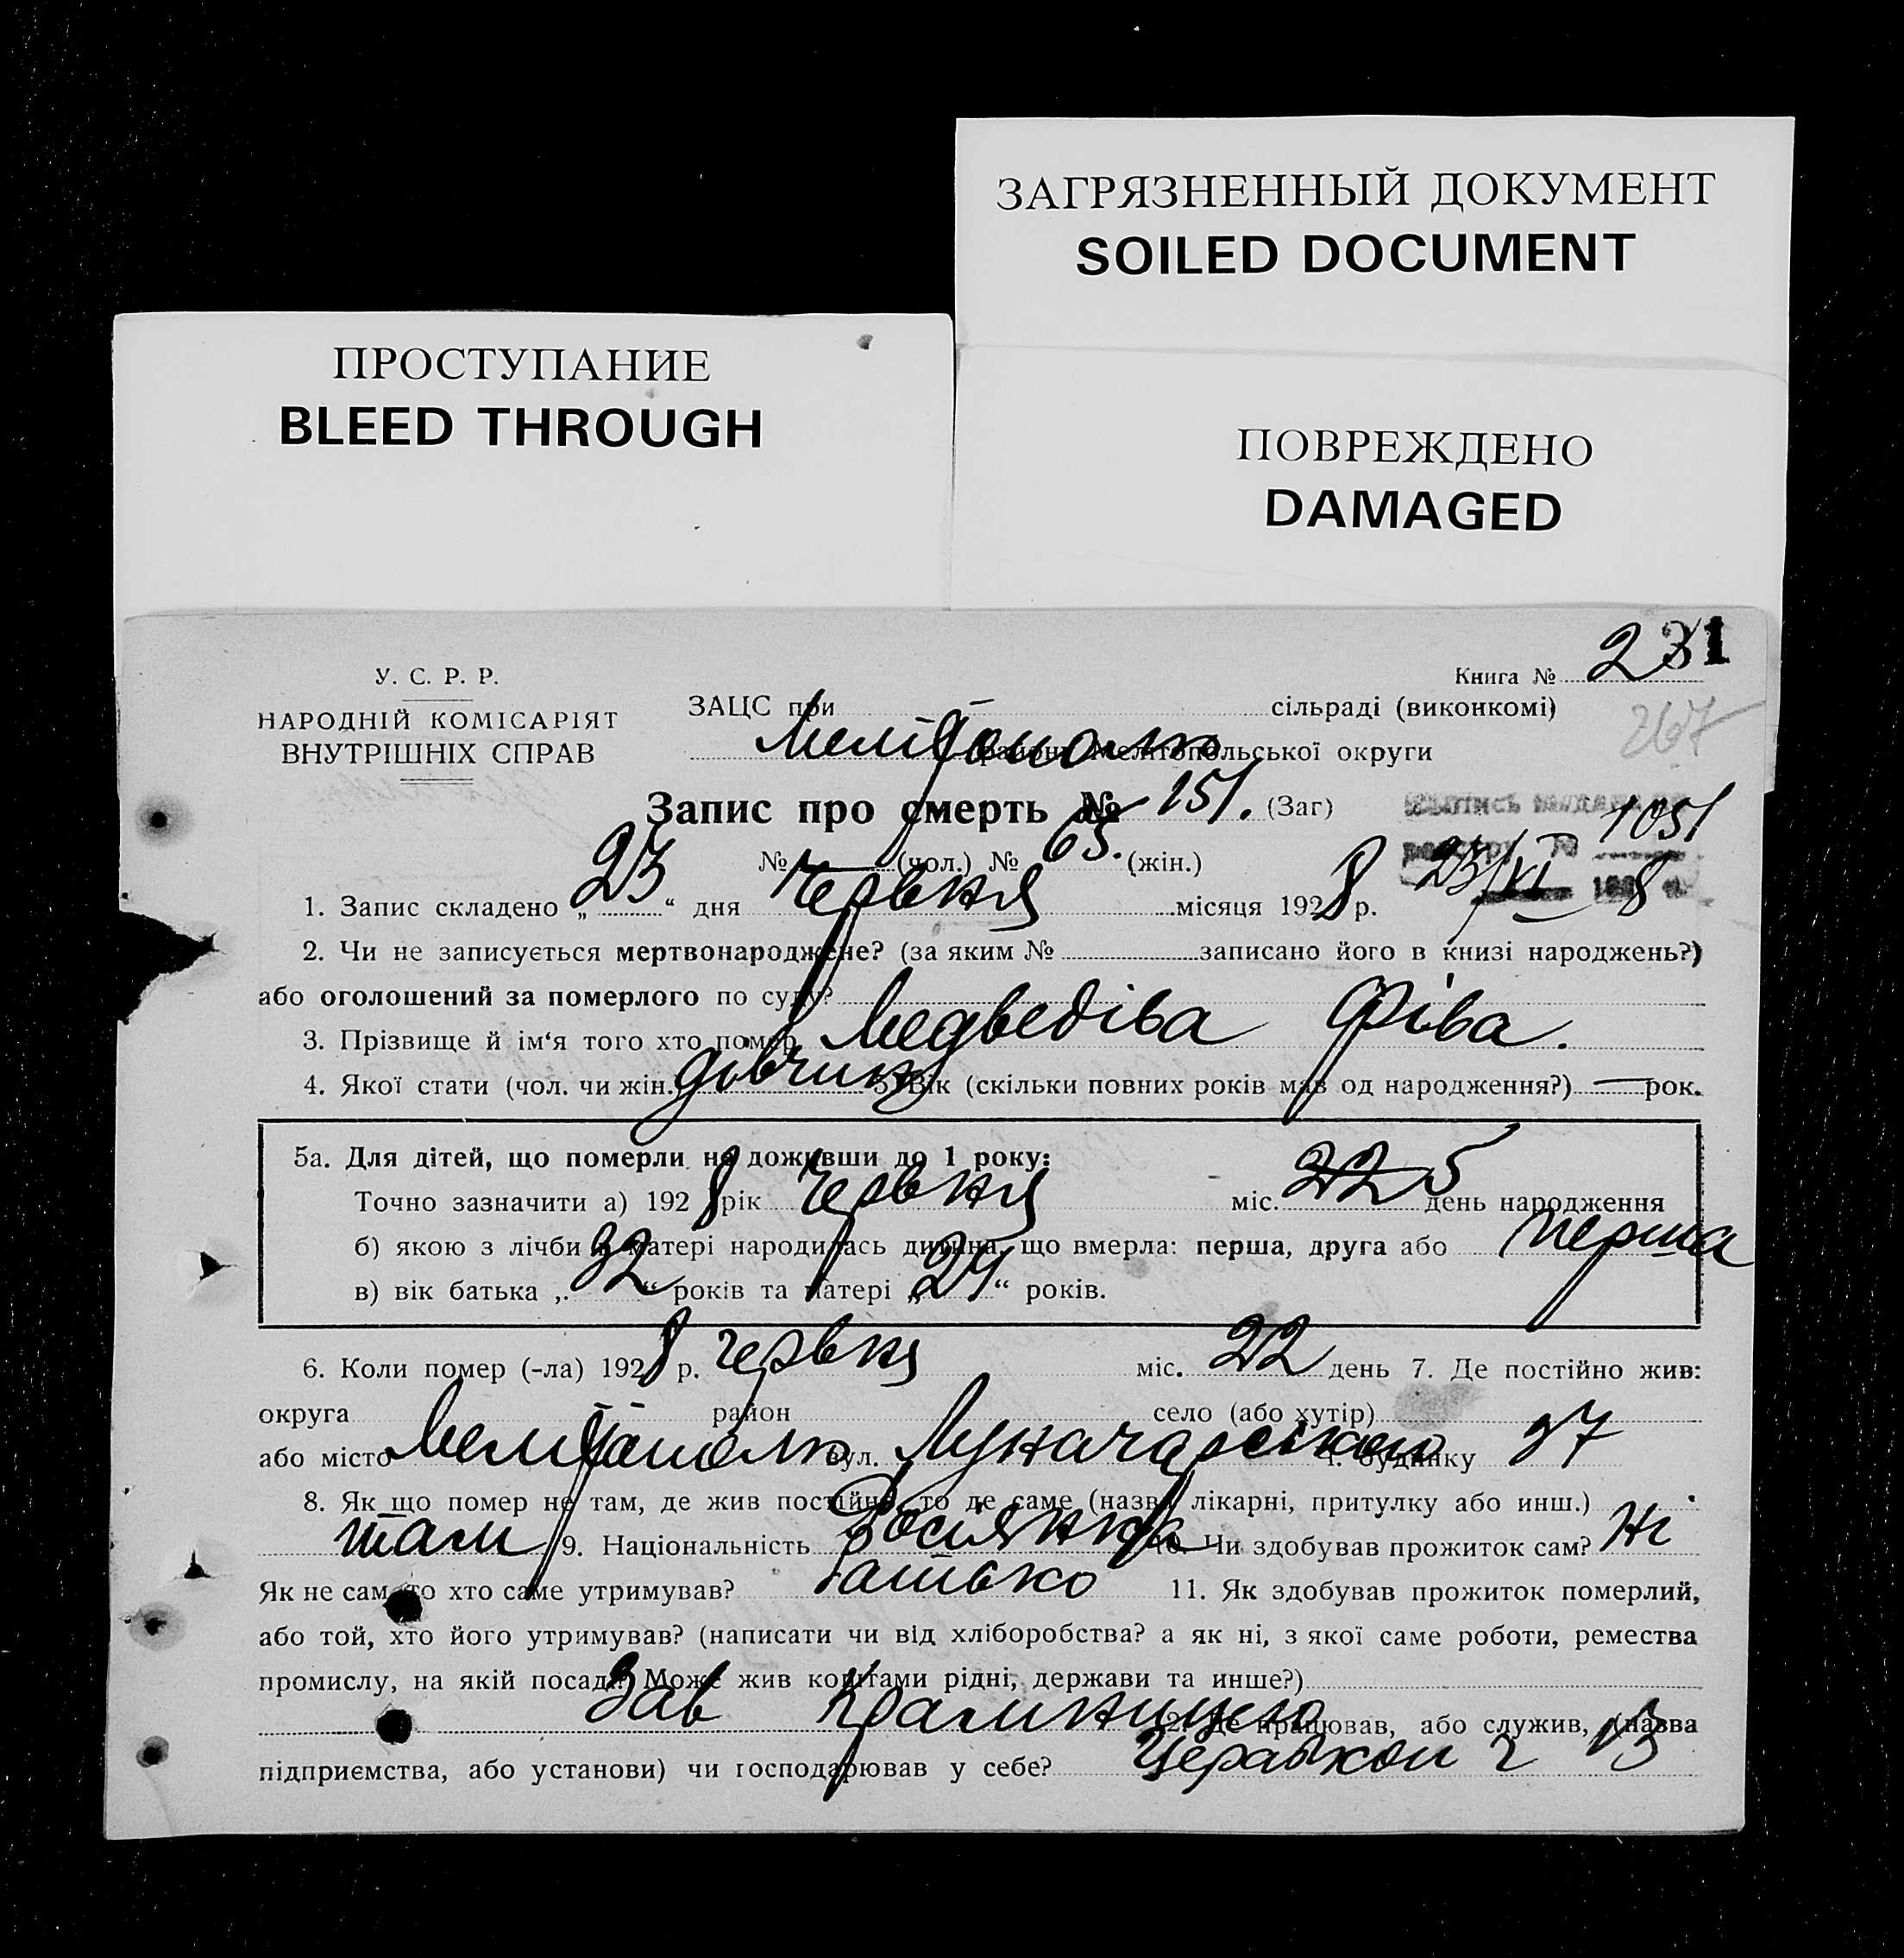 ЗАГРЯЗНЕННЫЙ ДОКУМЕНТ
SOILED DOCUMENT
ПРОСТУПАНИЕ
BLEED THROUGH
ПОВРЕЖДЕНО
DAMAGED
У. С. Р. Р.
НАРОДНІЙ КОМІСАРІЯТ
ВНУТРІШНІХ СПРАВ
Книга № 231
267
ЗАЦС при сільраді (виконкомі)
Мелітополь району Мелітопольської округи
Запис про смерть № 151. (Заг)
1051
№ — (чол.) № 65. (жін.)
23/VI 1928
1. Запис складено „23“ дня Червня місяця 1928 р.
2. Чи не записується мертвонароджене? (за яким № записано його в книзі народжень?)
або оголошений за померлого по суду?
3. Прізвище й ім‘я того хто помер Медведіва Фіва.
4. Якої стати (чол. чи жін.) дівчина 5. Вік (скільки повних років мав од народження?) — рок.
5а. Для дітей, що померли не доживши до 1 року:
Точно зазначити а) 1928 рік Червня міс. 22 5 день народження
б) якою з лічби у матері народилась дитина, що вмерла: перша, друга або перша
в) вік батька „32“ років та матері „24“ років.
6. Коли помер (-ла) 1928 р. червня міс. 22 день 7. Де постійно жив:
округа район село (або хутір)
або місто Мелітополь вул. Луначарського ч. будинку 37
8. Як що помер не там, де жив постійно, то де саме (назва лікарні, притулку або инш.)
там 9. Національність Росіянка 10. Чи здобував прожиток сам? Ні
Як не сам, то хто саме утримував? батько 11. Як здобував прожиток померлий,
або той, хто його утримував? (написати чи від хліборобства? а як ні, з якої саме роботи, ремества
промислу, на якій посаді? Може жив коштами рідні, держави та инше?)
Зав Крамницею 12. Де працював, або служив, (назва
підприємства, або установи) чи господарював у себе? Церабкоп ч 13